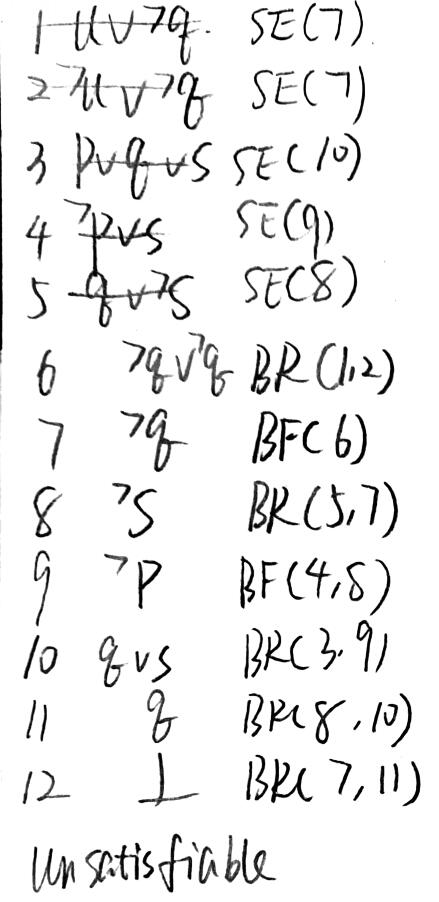 1 u∨¬q. SE(7)
2 ¬u∨¬q SE(7)
3 p∨q∨s SE(10)
4 ¬p∨s SE(9)
5 q∨¬s SE(8)
6 ¬q∨¬q BR(1,2)
7 ¬q BF(6)
8 ¬s BR(5,7)
9 ¬p BF(4,8)
10 q∨s BR(3,9)
11 q BR(8,10)
12 ⊥ BR(7,11)
unsatisfiable